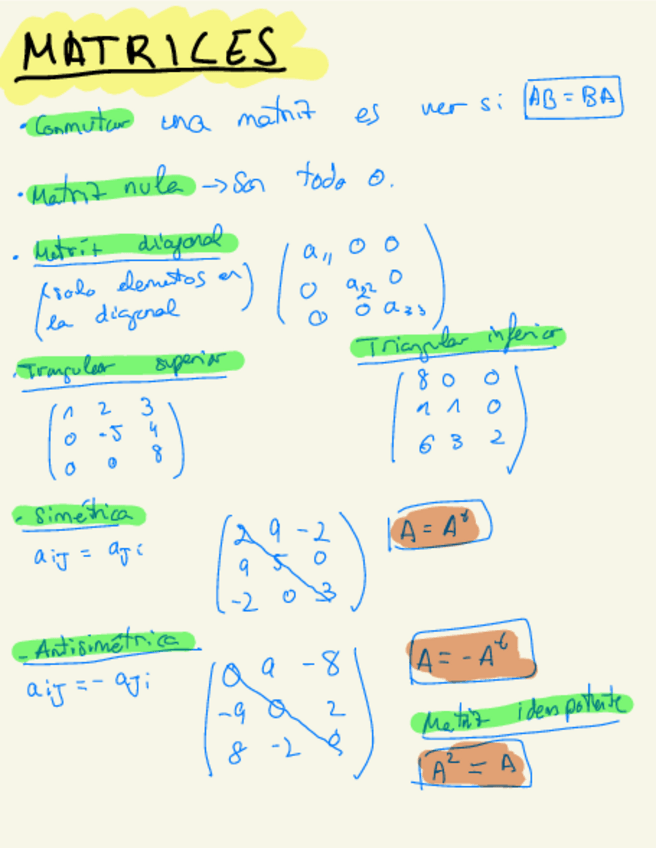 MATRICES
• Conmutar una matriz es ver si AB = BA
• Matriz nula → Son todo 0.
• Matriz diagonal
(solo elementos en
la diagonal)
a₁₁ 0 0
0 a₂₂ 0
0 0 a₃₃
• Triangular superior
1 2 3
0 -5 4
0 0 8
Triangular inferior
8 0 0
1 1 0
6 3 2
- Simétrica
aij = aji
2 9 -2
9 5 0
-2 0 3
A = Aᵗ
- Antisimétrica
aij = - aji
0 9 -8
-9 0 2
8 -2 0
A = - Aᵗ
Matriz idempotente
A² = A